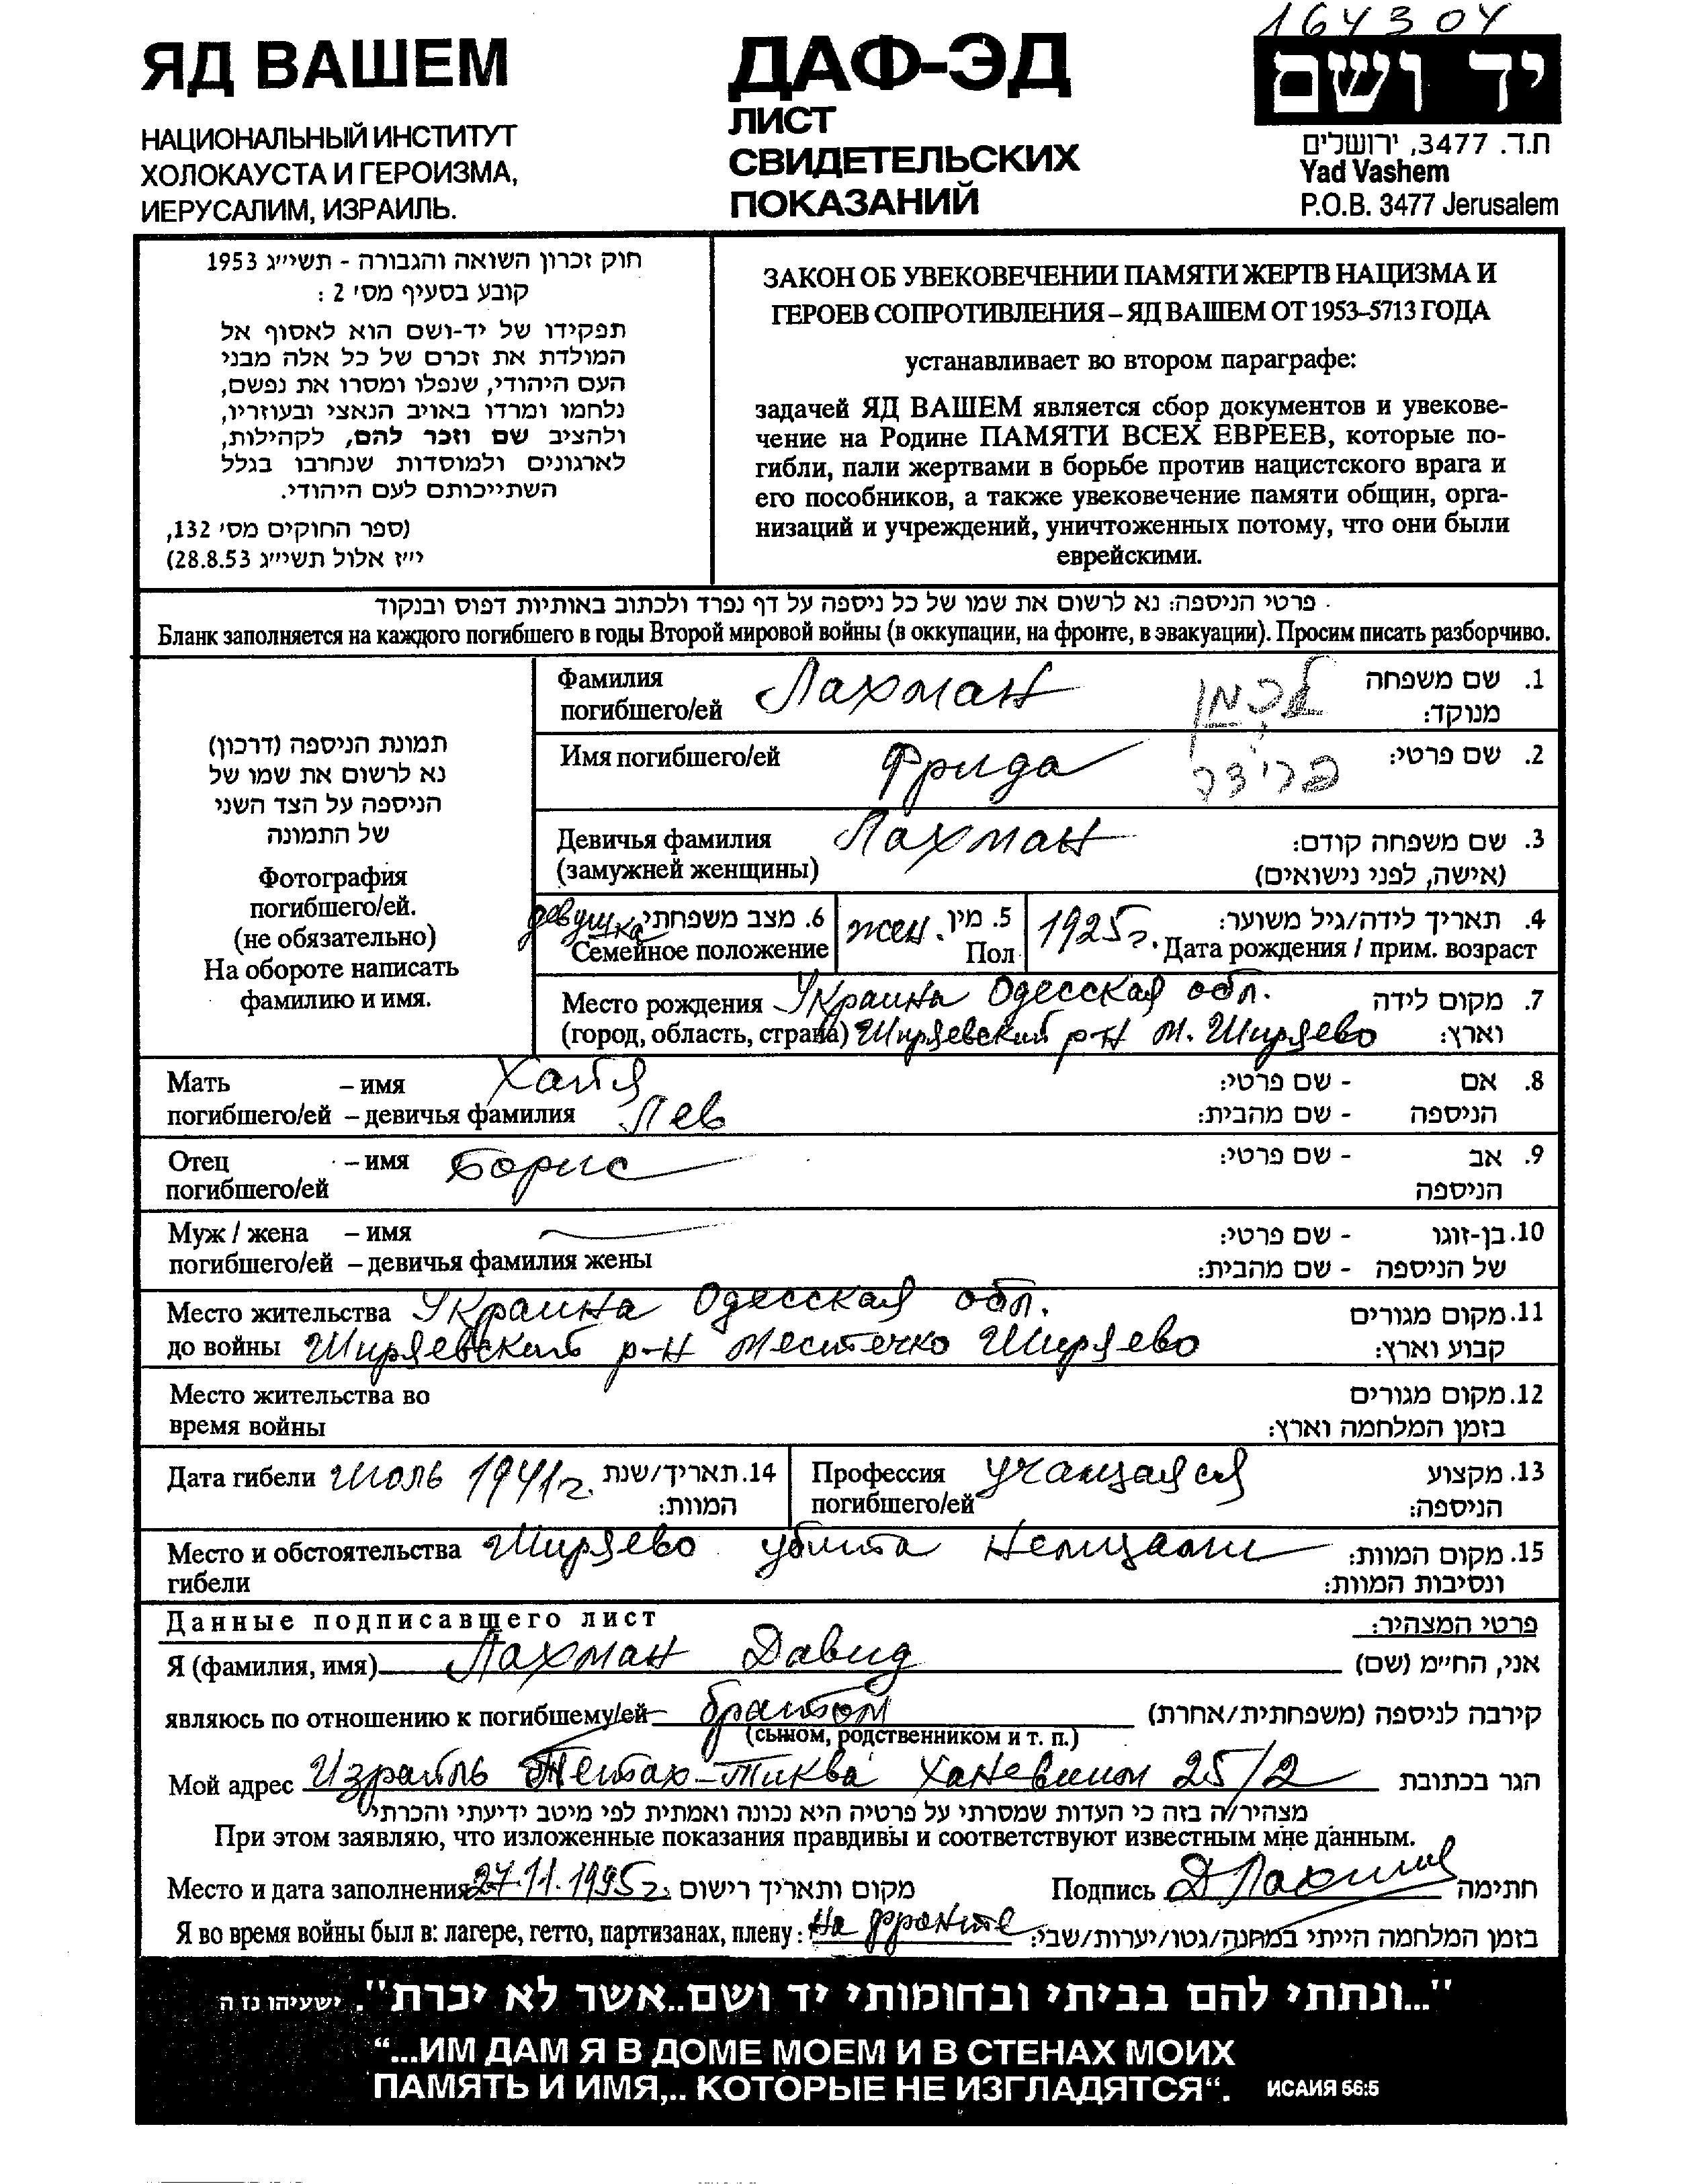 164304
ЯД ВАШЕМ
НАЦИОНАЛЬНЫЙ ИНСТИТУТ
ХОЛОКАУСТА И ГЕРОИЗМА,
ИЕРУСАЛИМ, ИЗРАИЛЬ.
ДАФ-ЭД
ЛИСТ
СВИДЕТЕЛЬСКИХ
ПОКАЗАНИЙ
יד ושם
ת.ד. 3477, ירושלים
Yad Vashem
P.O.B. 3477 Jerusalem
חוק זכרון השואה והגבורה - תשי״ג 1953
קובע בסעיף מס׳ 2 :
תפקידו של יד-ושם הוא לאסוף אל
המולדת את זכרם של כל אלה מבני
העם היהודי, שנפלו ומסרו את נפשם,
נלחמו ומרדו באויב הנאצי ובעוזריו,
ולהציב שם וזכר להם, לקהילות,
לארגונים ולמוסדות שנחרבו בגלל
השתייכותם לעם היהודי.
(ספר החוקים מס׳ 132,
י״ז אלול תשי״ג 28.8.53)
ЗАКОН ОБ УВЕКОВЕЧЕНИИ ПАМЯТИ ЖЕРТВ НАЦИЗМА И
ГЕРОЕВ СОПРОТИВЛЕНИЯ – ЯД ВАШЕМ ОТ 1953–5713 ГОДА
устанавливает во втором параграфе:
задачей ЯД ВАШЕМ является сбор документов и увекове-
чение на Родине ПАМЯТИ ВСЕХ ЕВРЕЕВ, которые по-
гибли, пали жертвами в борьбе против нацистского врага и
его пособников, а также увековечение памяти общин, орга-
низаций и учреждений, уничтоженных потому, что они были
еврейскими.
פרטי הניספה: נא לרשום את שמו של כל ניספה על דף נפרד ולכתוב באותיות דפוס ובנקוד
Бланк заполняется на каждого погибшего в годы Второй мировой войны (в оккупации, на фронте, в эвакуации). Просим писать разборчиво.
תמונת הניספה (דרכון)
נא לרשום את שמו של
הניספה על הצד השני
של התמונה
Фотография
погибшего/ей.
(не обязательно)
На обороте написать
фамилию и имя.
Фамилия Лахман לכמן 1. שם משפחה
погибшего/ей מנוקד:
Имя погибшего/ей Фрида פרידה 2. שם פרטי:
Девичья фамилия Лахман 3. שם משפחה קודם:
(замужней женщины) (אישה, לפני נישואים)
девушка 6. מצב משפחתי
Семейное положение
жен. 5. מין
Пол
1925г. 4. תאריך לידה/גיל משוער:
Дата рождения / прим. возраст
Место рождения Украина Одесская обл. 7. מקום לידה
(город, область, страна) Ширяевский р-н м. Ширяево וארץ:
Мать – имя Хайя 8. אם - שם פרטי:
погибшего/ей – девичья фамилия Лев הניספה - שם מהבית:
Отец – имя Борис 9. אב - שם פרטי:
погибшего/ей הניספה
Муж / жена – имя 10. בן-זוגו - שם פרטי:
погибшего/ей – девичья фамилия жены של הניספה - שם מהבית:
Место жительства Украина Одесская обл. 11. מקום מגורים
до войны Ширяевский р-н местечко Ширяево קבוע וארץ:
Место жительства во 12. מקום מגורים
время войны בזמן המלחמה וארץ:
Дата гибели Июль 1941г. 14. תאריך/שנת
המוות:
Профессия учащаяся 13. מקצוע
погибшего/ей הניספה:
Место и обстоятельства Ширяево убита немцами 15. מקום המוות:
гибели ונסיבות המוות:
Данные подписавшего лист פרטי המצהיר:
Я (фамилия, имя) Лахман Давид אני, הח״מ (שם)
являюсь по отношению к погибшему/ей братом קירבה לניספה (משפחתית/אחרת)
(сыном, родственником и т. п.)
Мой адрес Израиль Петах-Тиква Ханевиим 25/2 הגר בכתובת
מצהיר/ה בזה כי העדות שמסרתי על פרטיה היא נכונה ואמתית לפי מיטב ידיעתי והכרתי
При этом заявляю, что изложенные показания правдивы и соответствуют известным мне данным.
Место и дата заполнения 27.11.1995г. מקום ותאריך רישום Подпись Д Лахман חתימה
Я во время войны был в: лагере, гетто, партизанах, плену: на фронте בזמן המלחמה הייתי במחנה/גטו/יערות/שבי:
"...ונתתי להם בביתי ובחומותי יד ושם..אשר לא יכרת". ישעיהו נז ה
“...ИМ ДАМ Я В ДОМЕ МОЕМ И В СТЕНАХ МОИХ
ПАМЯТЬ И ИМЯ,.. КОТОРЫЕ НЕ ИЗГЛАДЯТСЯ“. ИСАИЯ 56:5